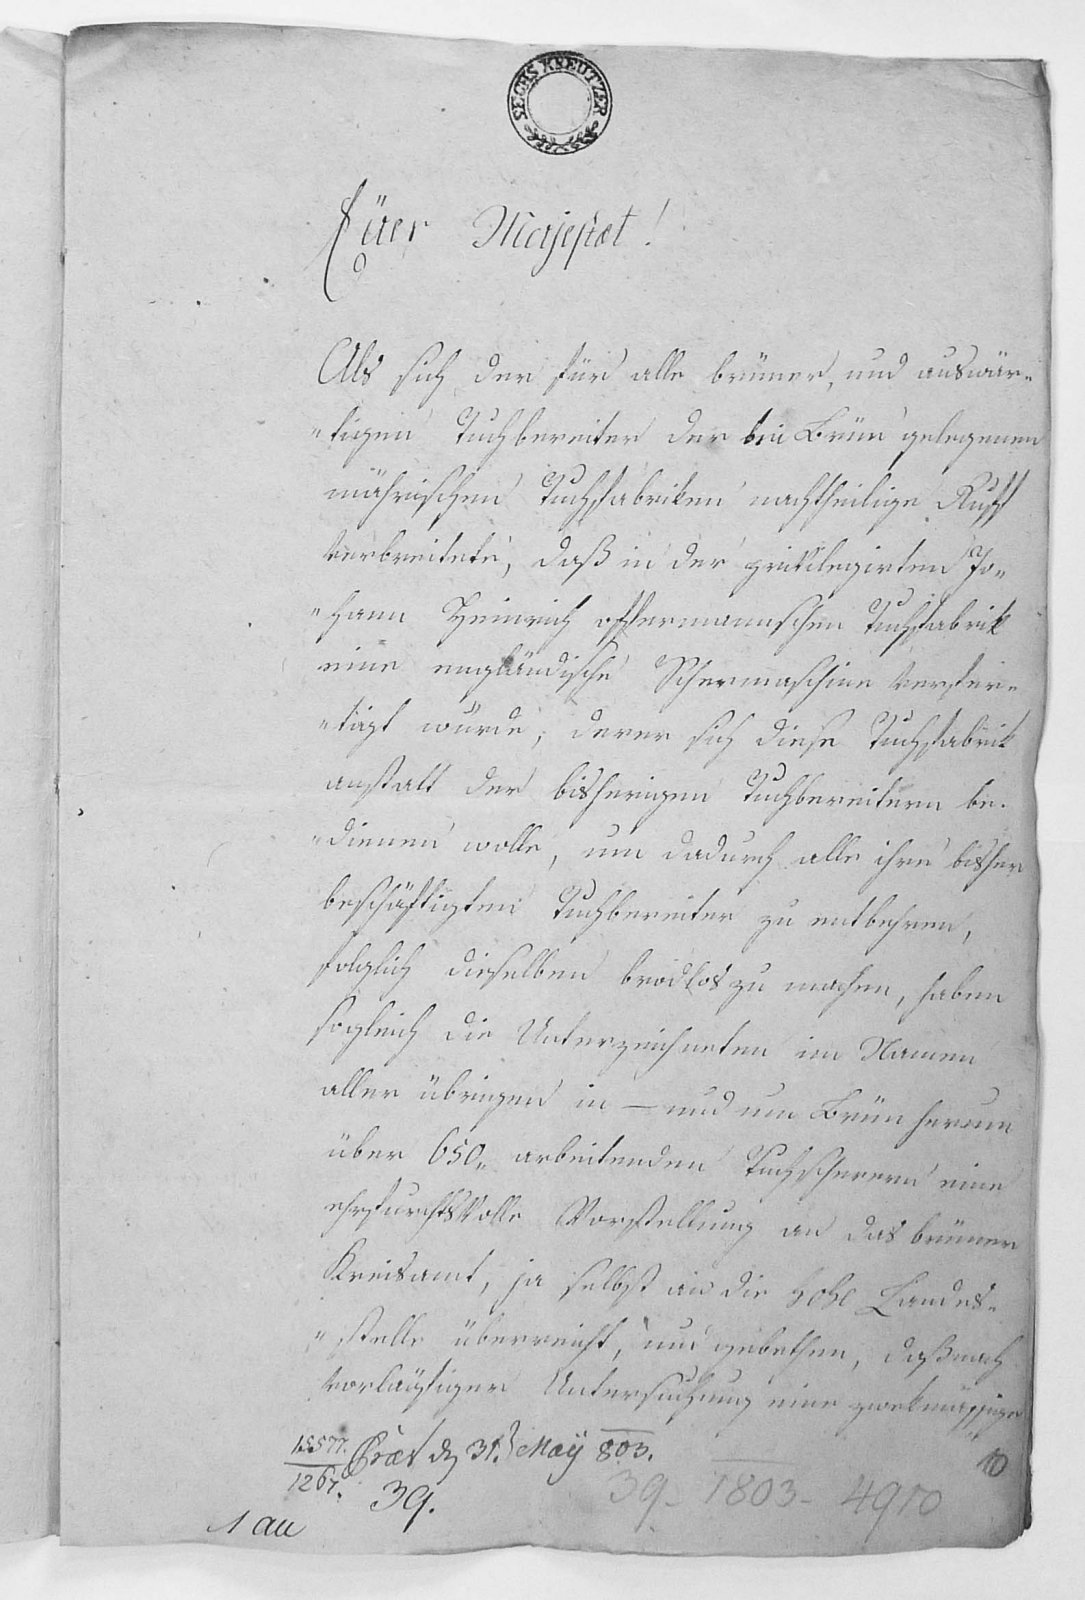 SECHS KREUTZER
Euer Majestæt!
Als sich der für alle brünner, und auswär-
-tigen Tuchbereiter der bei Brün gelegenen
mährischen Tuchfabriken nachtheilige Ruff
verbreitete, daß in der privilegirten Jo-
-hann Heinrich offermannischen Tuchfabrik
eine engländische Schermaschine verfer-
-tigt würde, derer sich diese Tuchfabrik
anstatt der bisherigen Tuchbereitern be-
-dienen wolle, um dadurch alle ihre bisher
beschäftigten Tuchbereiter zu entbehren,
folglich dieselben brodlos zu machen, haben
sogleich die Unterzeichneten im Namen
aller übrigen in – und um Brün herum
über 650„ arbeitenden Tuchscherern eine
ehrfurchtsvolle Vorstellung an das brünner
Kreisamt, ja selbst an die hohe Landes-
-stelle überreicht, und gebethen, daß nach
vorläufiger Untersuchung eine zwekmässige
15577. Præs d 31. May 803.
1267. 39.
39 - 1803 - 4910
10